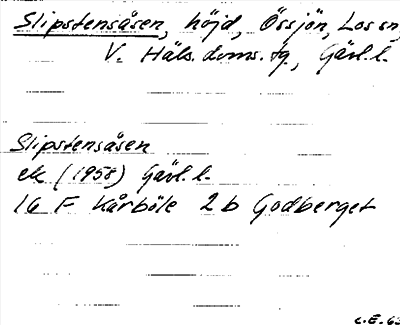 Slipstensåsen, höjd, Össjön, Los sn,
V. Häls. doms. tg., Gävl. l.
Slipstensåsen
ek (1958) Gävl. l.
16 F Kårböle 2 b Godberget
C.E. 63